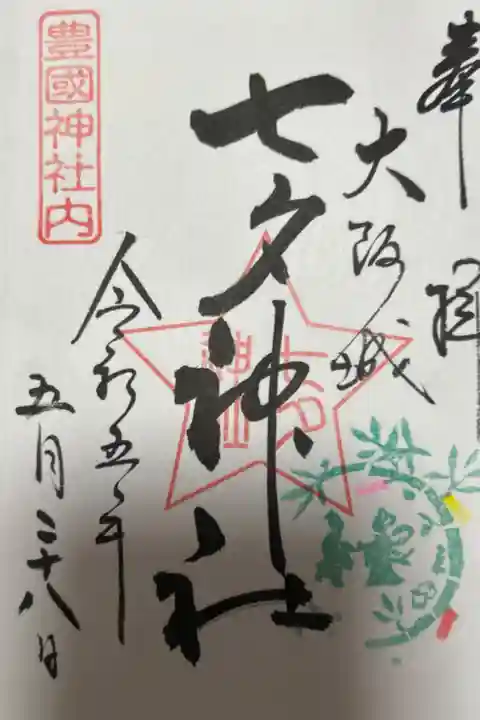 奉拝
大阪城
七夕神社
七夕神社
令和五年
五月二十八日
豊國神社内